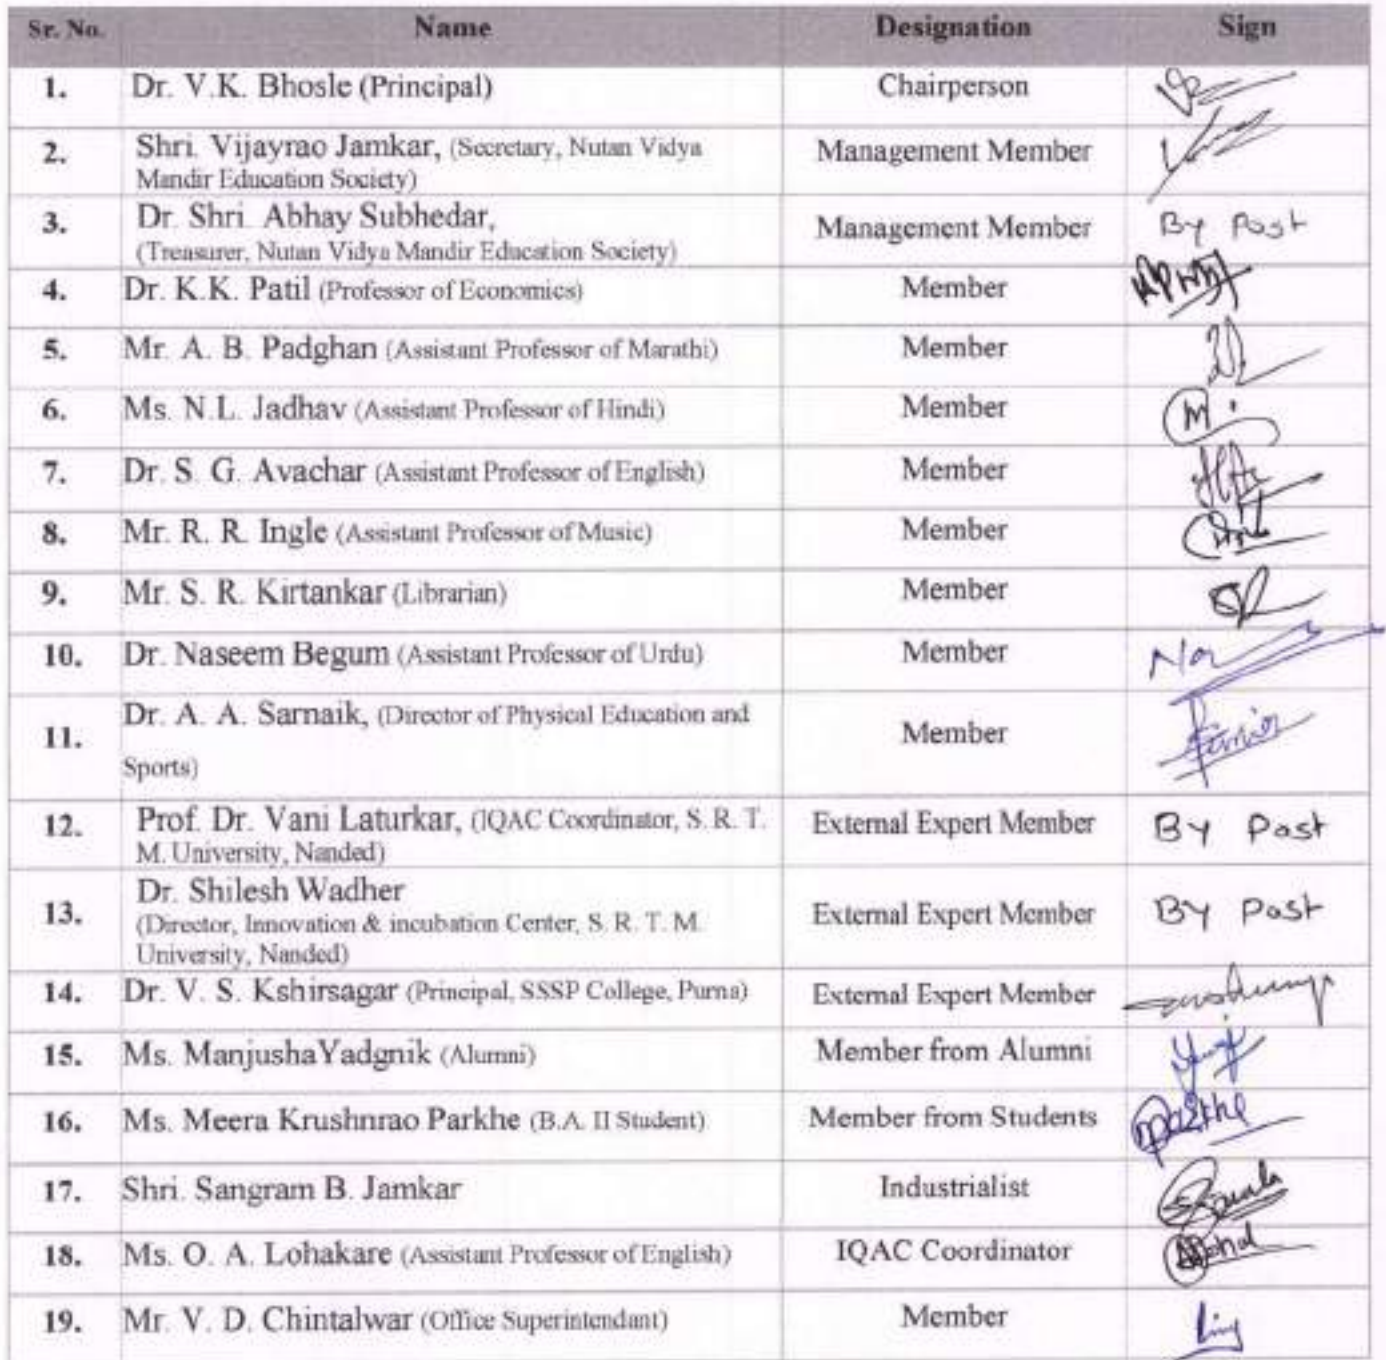 Sr. No. Name Designation Sign
1. Dr. V.K. Bhosle (Principal) Chairperson
2. Shri. Vijayrao Jamkar, (Secretary, Nutan Vidya Management Member
Mandir Education Society)
3. Dr. Shri. Abhay Subhedar, Management Member By Post
(Treasurer, Nutan Vidya Mandir Education Society)
4. Dr. K.K. Patil (Professor of Economics) Member
5. Mr. A. B. Padghan (Assistant Professor of Marathi) Member
6. Ms. N.L. Jadhav (Assistant Professor of Hindi) Member
7. Dr. S. G. Avachar (Assistant Professor of English) Member
8. Mr. R. R. Ingle (Assistant Professor of Music) Member
9. Mr. S. R. Kirtankar (Librarian) Member
10. Dr. Naseem Begum (Assistant Professor of Urdu) Member
11. Dr. A. A. Sarnaik, (Director of Physical Education and Member
Sports)
12. Prof. Dr. Vani Laturkar, (IQAC Coordinator, S. R. T. External Expert Member By Post
M. University, Nanded)
13. Dr. Shilesh Wadher External Expert Member By Post
(Director, Innovation & incubation Center, S. R. T. M.
University, Nanded)
14. Dr. V. S. Kshirsagar (Principal, SSSP College, Purna) External Expert Member
15. Ms. ManjushaYadgnik (Alumni) Member from Alumni
16. Ms. Meera Krushnrao Parkhe (B.A. II Student) Member from Students
17. Shri. Sangram B. Jamkar Industrialist
18. Ms. O. A. Lohakare (Assistant Professor of English) IQAC Coordinator
19. Mr. V. D. Chintalwar (Office Superintendant) Member